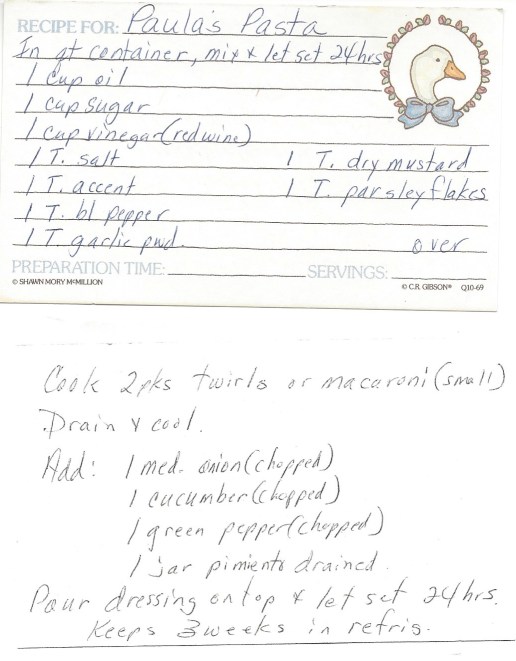 RECIPE FOR: Paula's Pasta
In qt container, mix & let set 24 hrs
1 Cup oil
1 cup sugar
1 cup vinegar (red wine)
1 T. salt 1 T. dry mustard
1 T. accent 1 T. parsley flakes
1 T. bl pepper
1 T. garlic pwd. over
PREPARATION TIME: SERVINGS:
© SHAWN MORY McMILLION © C.R. GIBSON® Q10-69
Cook 2 pks twirls or macaroni (small)
Drain & cool.
Add: 1 med. onion (chopped)
1 cucumber (chopped)
1 green pepper (chopped)
1 jar pimiento drained.
Pour dressing on top & let set 24 hrs.
Keeps 3 weeks in refrig.